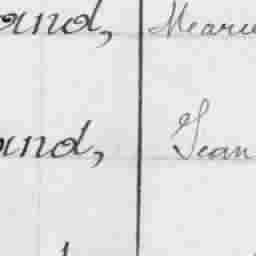 and, Marie
and, Jean